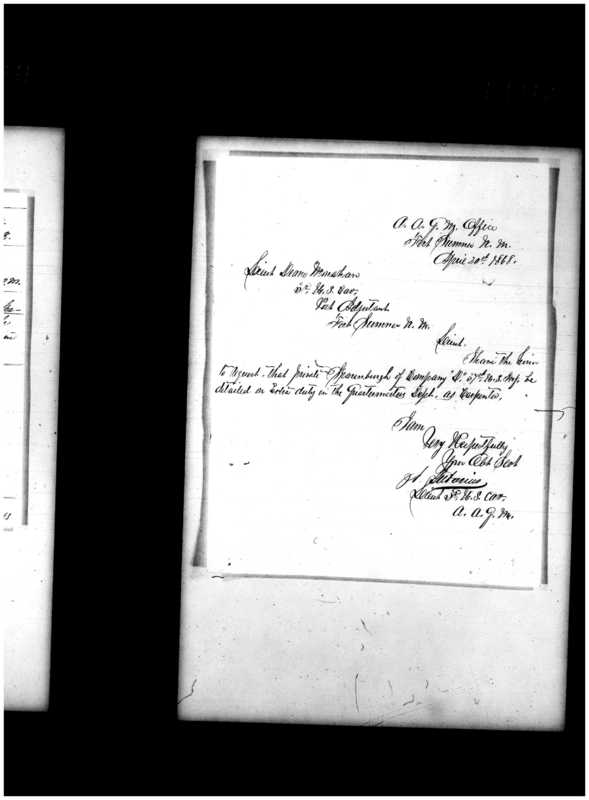 A. A. Q. M. Office
Fort Sumner N. M.
April 30th 1868.
Lieut Deane Monahan
3d U. S. Cav.
Post Adjutant
Fort Sumner N. M.
Lieut.
I have the honor
to request that Private of Company 37th U. S. Inf. be
detailed on Extra duty in the Quartermasters Dept. as Carpenter.
I am
Very Respectfully
Your Obt Servt
Lieut 3d U. S. Cav.
A. A. Q. M.